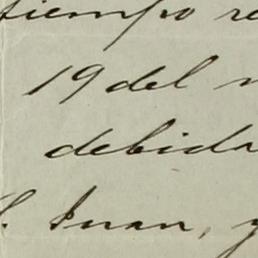 tiempo re
19 del
debida
S. Juan, y